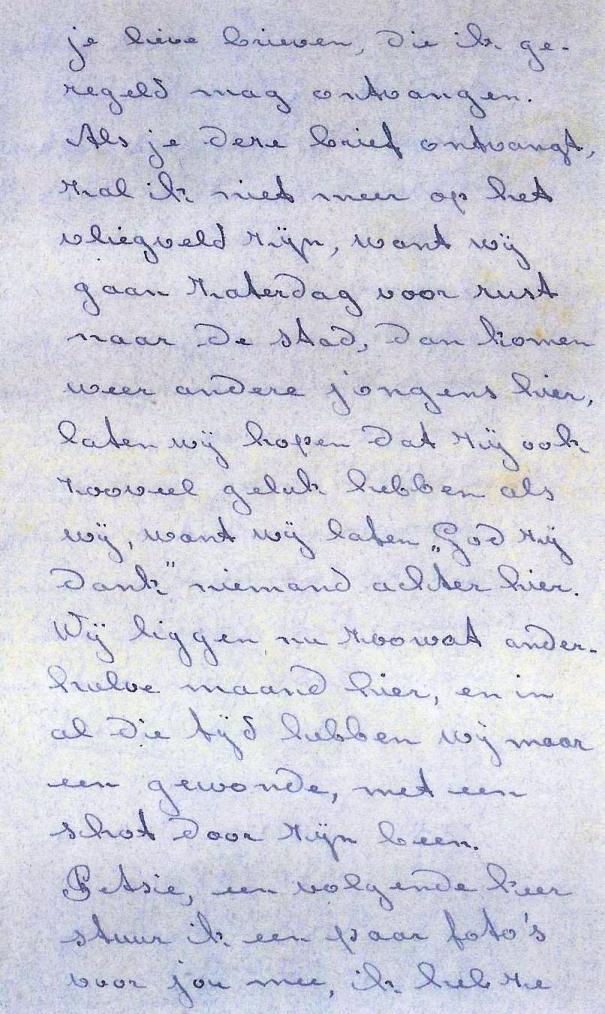 je lieve brieven, die ik ge-
regeld mag ontvangen.
Als je deze brief ontvangt,
zal ik niet meer op het
vliegveld zijn, want wij
gaan Zaterdag voor rust
naar de stad, dan komen
weer andere jongens hier,
laten wij hopen dat zij ook
zooveel geluk hebben als
wij, want wij laten „God zij
dank" niemand achter hier.
Wij liggen nu zoowat ander-
halve maand hier, en in
al die tijd hebben wij maar
een gewonde, met een
schot door zijn been.
Betsie, een volgende keer
stuur ik een paar foto's
voor jou mee, ik heb ze